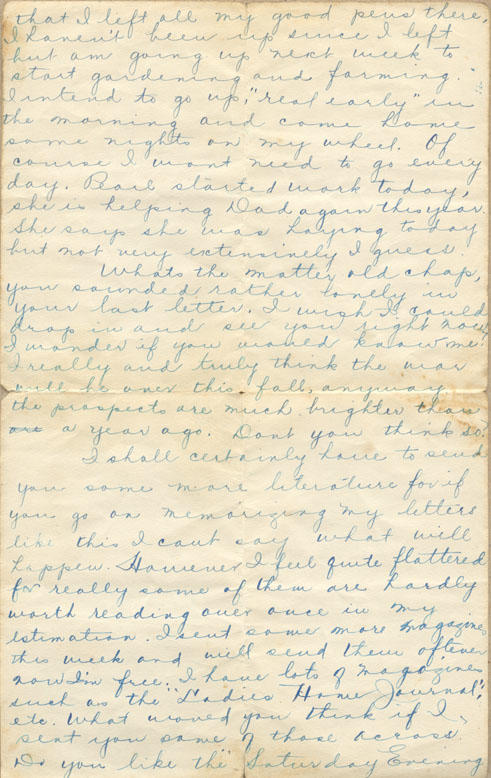 that I left all my good pens there,
I haven't been up since I left
but am going up next week to
start gardening and farming.
I intend to go up, "real early" in
the morning and come home
some nights on my wheel. Of
course I wont need to go every
day. Pearl started work today,
she is helping Dad again this year.
She says she was haying today
but not very extensively I guess.
Whats the matter old chap,
you sounded rather lonely in
your last letter. I wish I could
drop in and see you right now!
I wonder if you would know me?
I really and truly think the war
will be over this fall, anyway
the prospects are much brighter than
are a year ago. Dont you think so?
I shall certainly have to send
you some more literature for if
you go on memorizing my letters
like this I cant say what will
happen. However I feel quite flattered
for really some of them are hardly
worth reading over once in my
estimation. I sent some more magazines
this week and will send them oftener
now I'm free. I have lots of magazines
such as the "Ladies Home Journal",
etc. What would you think if I
sent you some of those across.
Do you like the "Saturday Evening